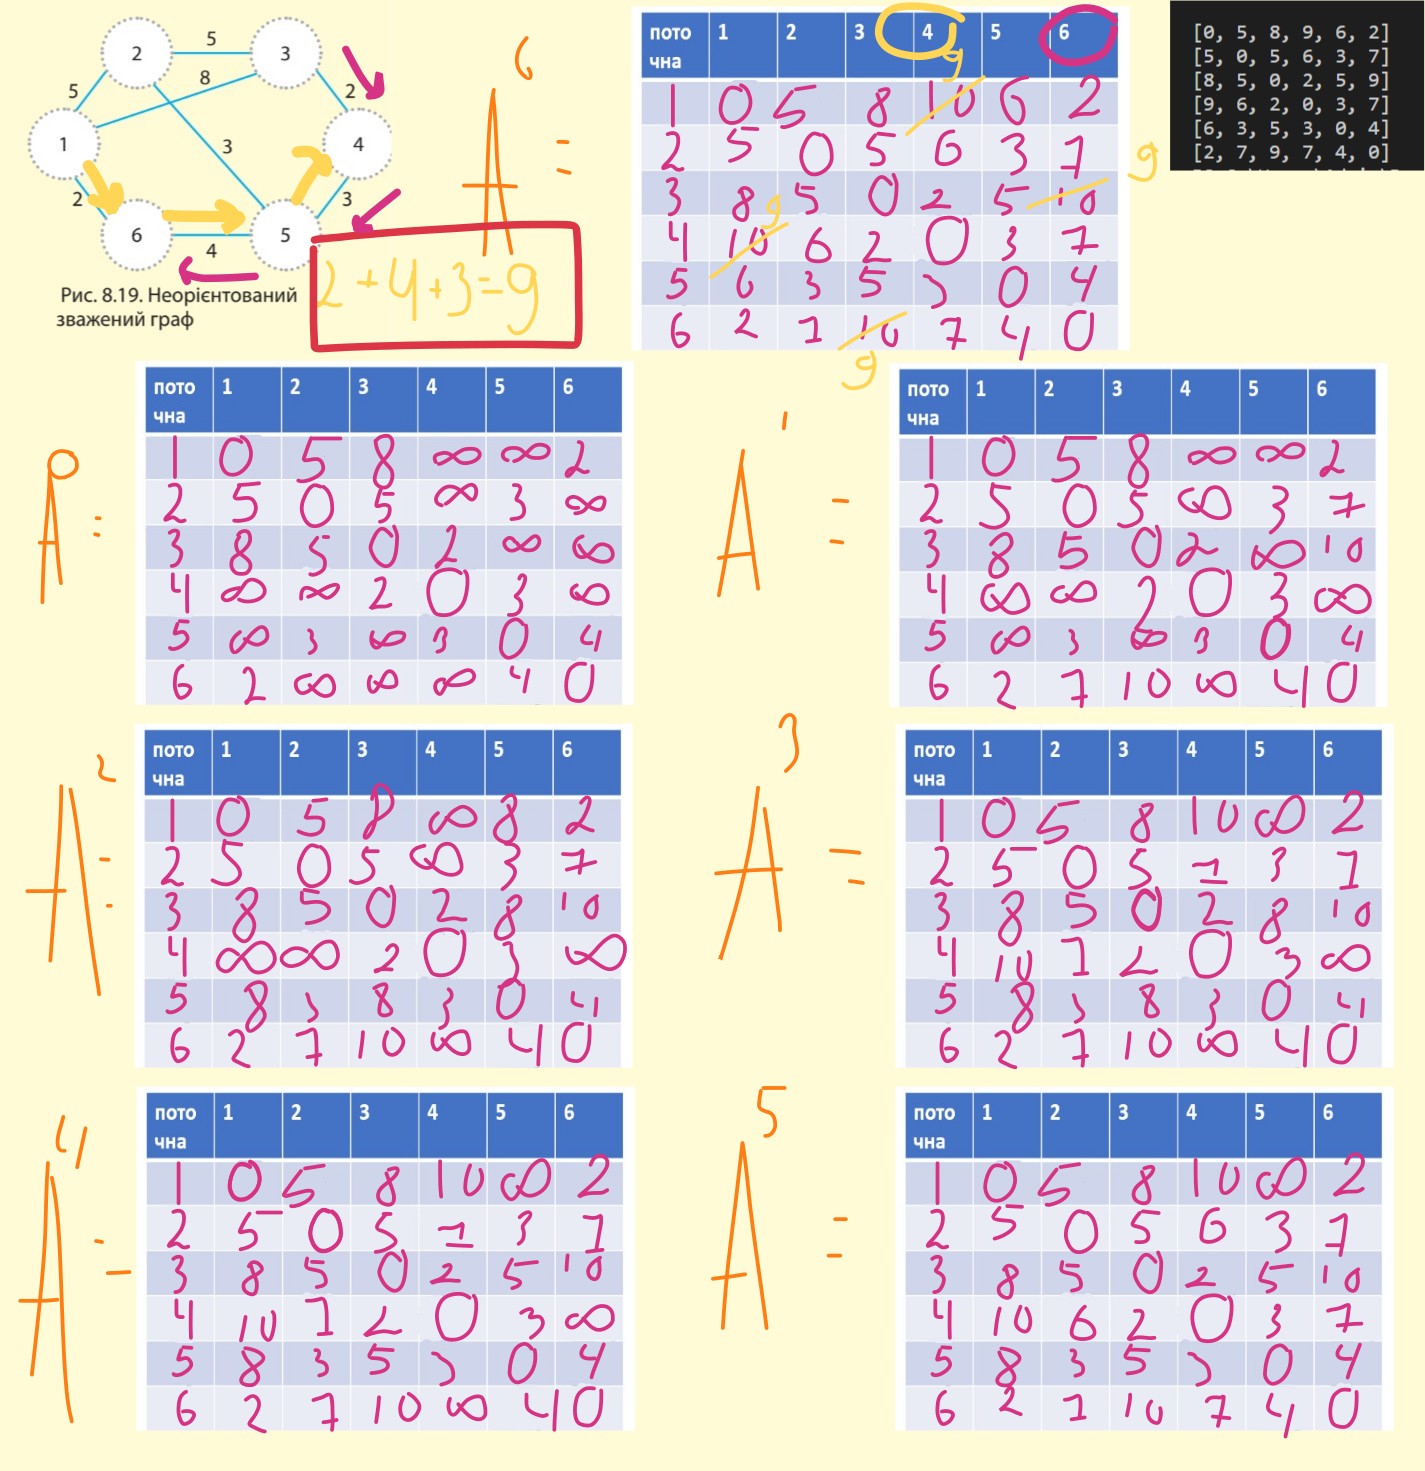 2 5 3
5 8 2
1 3 4
2 3
6 4 5
Рис. 8.19. Неорієнтований
зважений граф
2+4+3=9
A⁶ =
пото чна 1 2 3 4 5 6
1 0 5 8 10 9 6 2
2 5 0 5 6 3 7
3 8 5 0 2 5 10 9
4 10 9 6 2 0 3 7
5 6 3 5 3 0 4
6 2 7 10 9 7 4 0
[0, 5, 8, 9, 6, 2]
[5, 0, 5, 6, 3, 7]
[8, 5, 0, 2, 5, 9]
[9, 6, 2, 0, 3, 7]
[6, 3, 5, 3, 0, 4]
[2, 7, 9, 7, 4, 0]
A⁰ =
пото чна 1 2 3 4 5 6
1 0 5 8 ∞ ∞ 2
2 5 0 5 ∞ 3 ∞
3 8 5 0 2 ∞ ∞
4 ∞ ∞ 2 0 3 ∞
5 ∞ 3 ∞ 3 0 4
6 2 ∞ ∞ ∞ 4 0
A¹ =
пото чна 1 2 3 4 5 6
1 0 5 8 ∞ ∞ 2
2 5 0 5 ∞ 3 7
3 8 5 0 2 ∞ 10
4 ∞ ∞ 2 0 3 ∞
5 ∞ 3 ∞ 3 0 4
6 2 7 10 ∞ 4 0
A² =
пото чна 1 2 3 4 5 6
1 0 5 8 ∞ 8 2
2 5 0 5 ∞ 3 7
3 8 5 0 2 8 10
4 ∞ ∞ 2 0 3 ∞
5 8 3 8 3 0 4
6 2 7 10 ∞ 4 0
A³ =
пото чна 1 2 3 4 5 6
1 0 5 8 10 ∞ 2
2 5 0 5 7 3 7
3 8 5 0 2 8 10
4 10 7 2 0 3 ∞
5 8 3 8 3 0 4
6 2 7 10 ∞ 4 0
A⁴ =
пото чна 1 2 3 4 5 6
1 0 5 8 10 ∞ 2
2 5 0 5 7 3 7
3 8 5 0 2 5 10
4 10 7 2 0 3 ∞
5 8 3 5 3 0 4
6 2 7 10 ∞ 4 0
A⁵ =
пото чна 1 2 3 4 5 6
1 0 5 8 10 ∞ 2
2 5 0 5 6 3 7
3 8 5 0 2 5 10
4 10 6 2 0 3 7
5 8 3 5 3 0 4
6 2 7 10 7 4 0